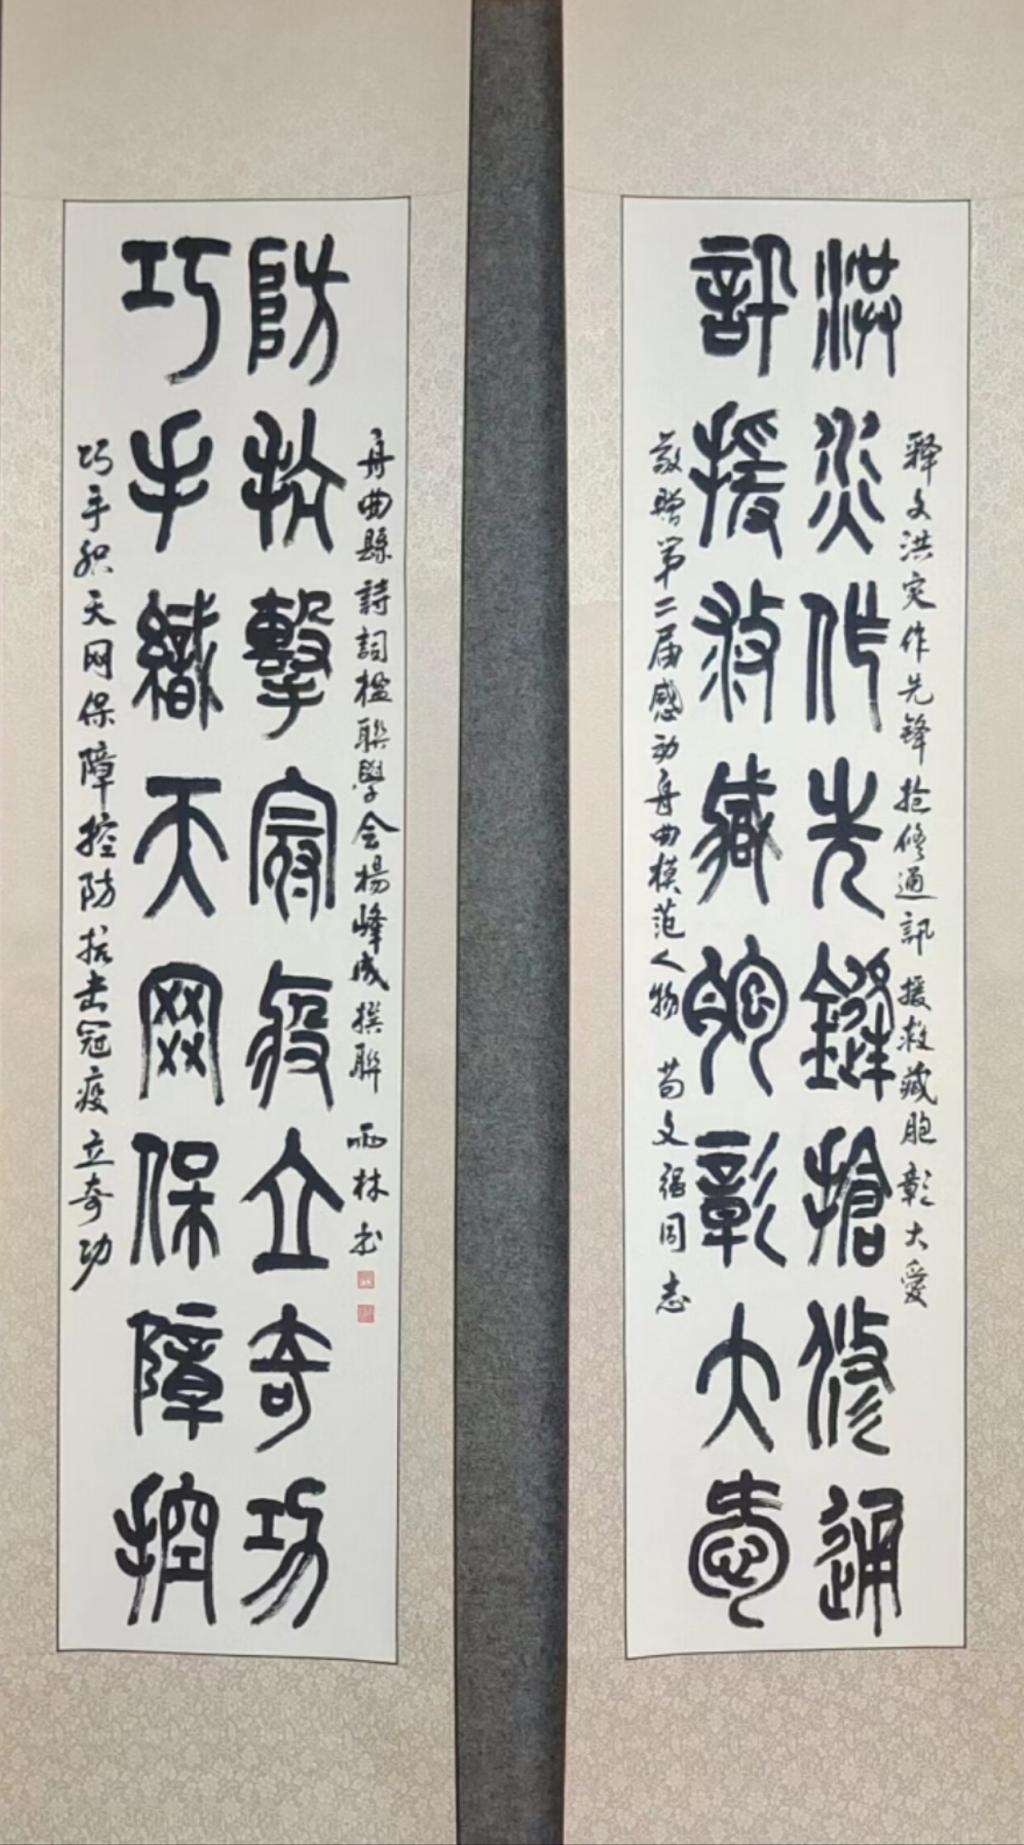 釋文洪灾作先锋抢修通訊援救藏胞彰大愛
洪災作先鋒搶修通
訊援救臧胞彰大愛
敬贈第二届感动舟曲模范人物 苟文强同志
巧手织天网保障控防抗击冠疫立奇功
巧手織天网保障控
防抗擊冠疫立奇功
舟曲縣詩詞楹聯學会楊峰成撰聯 雨林书